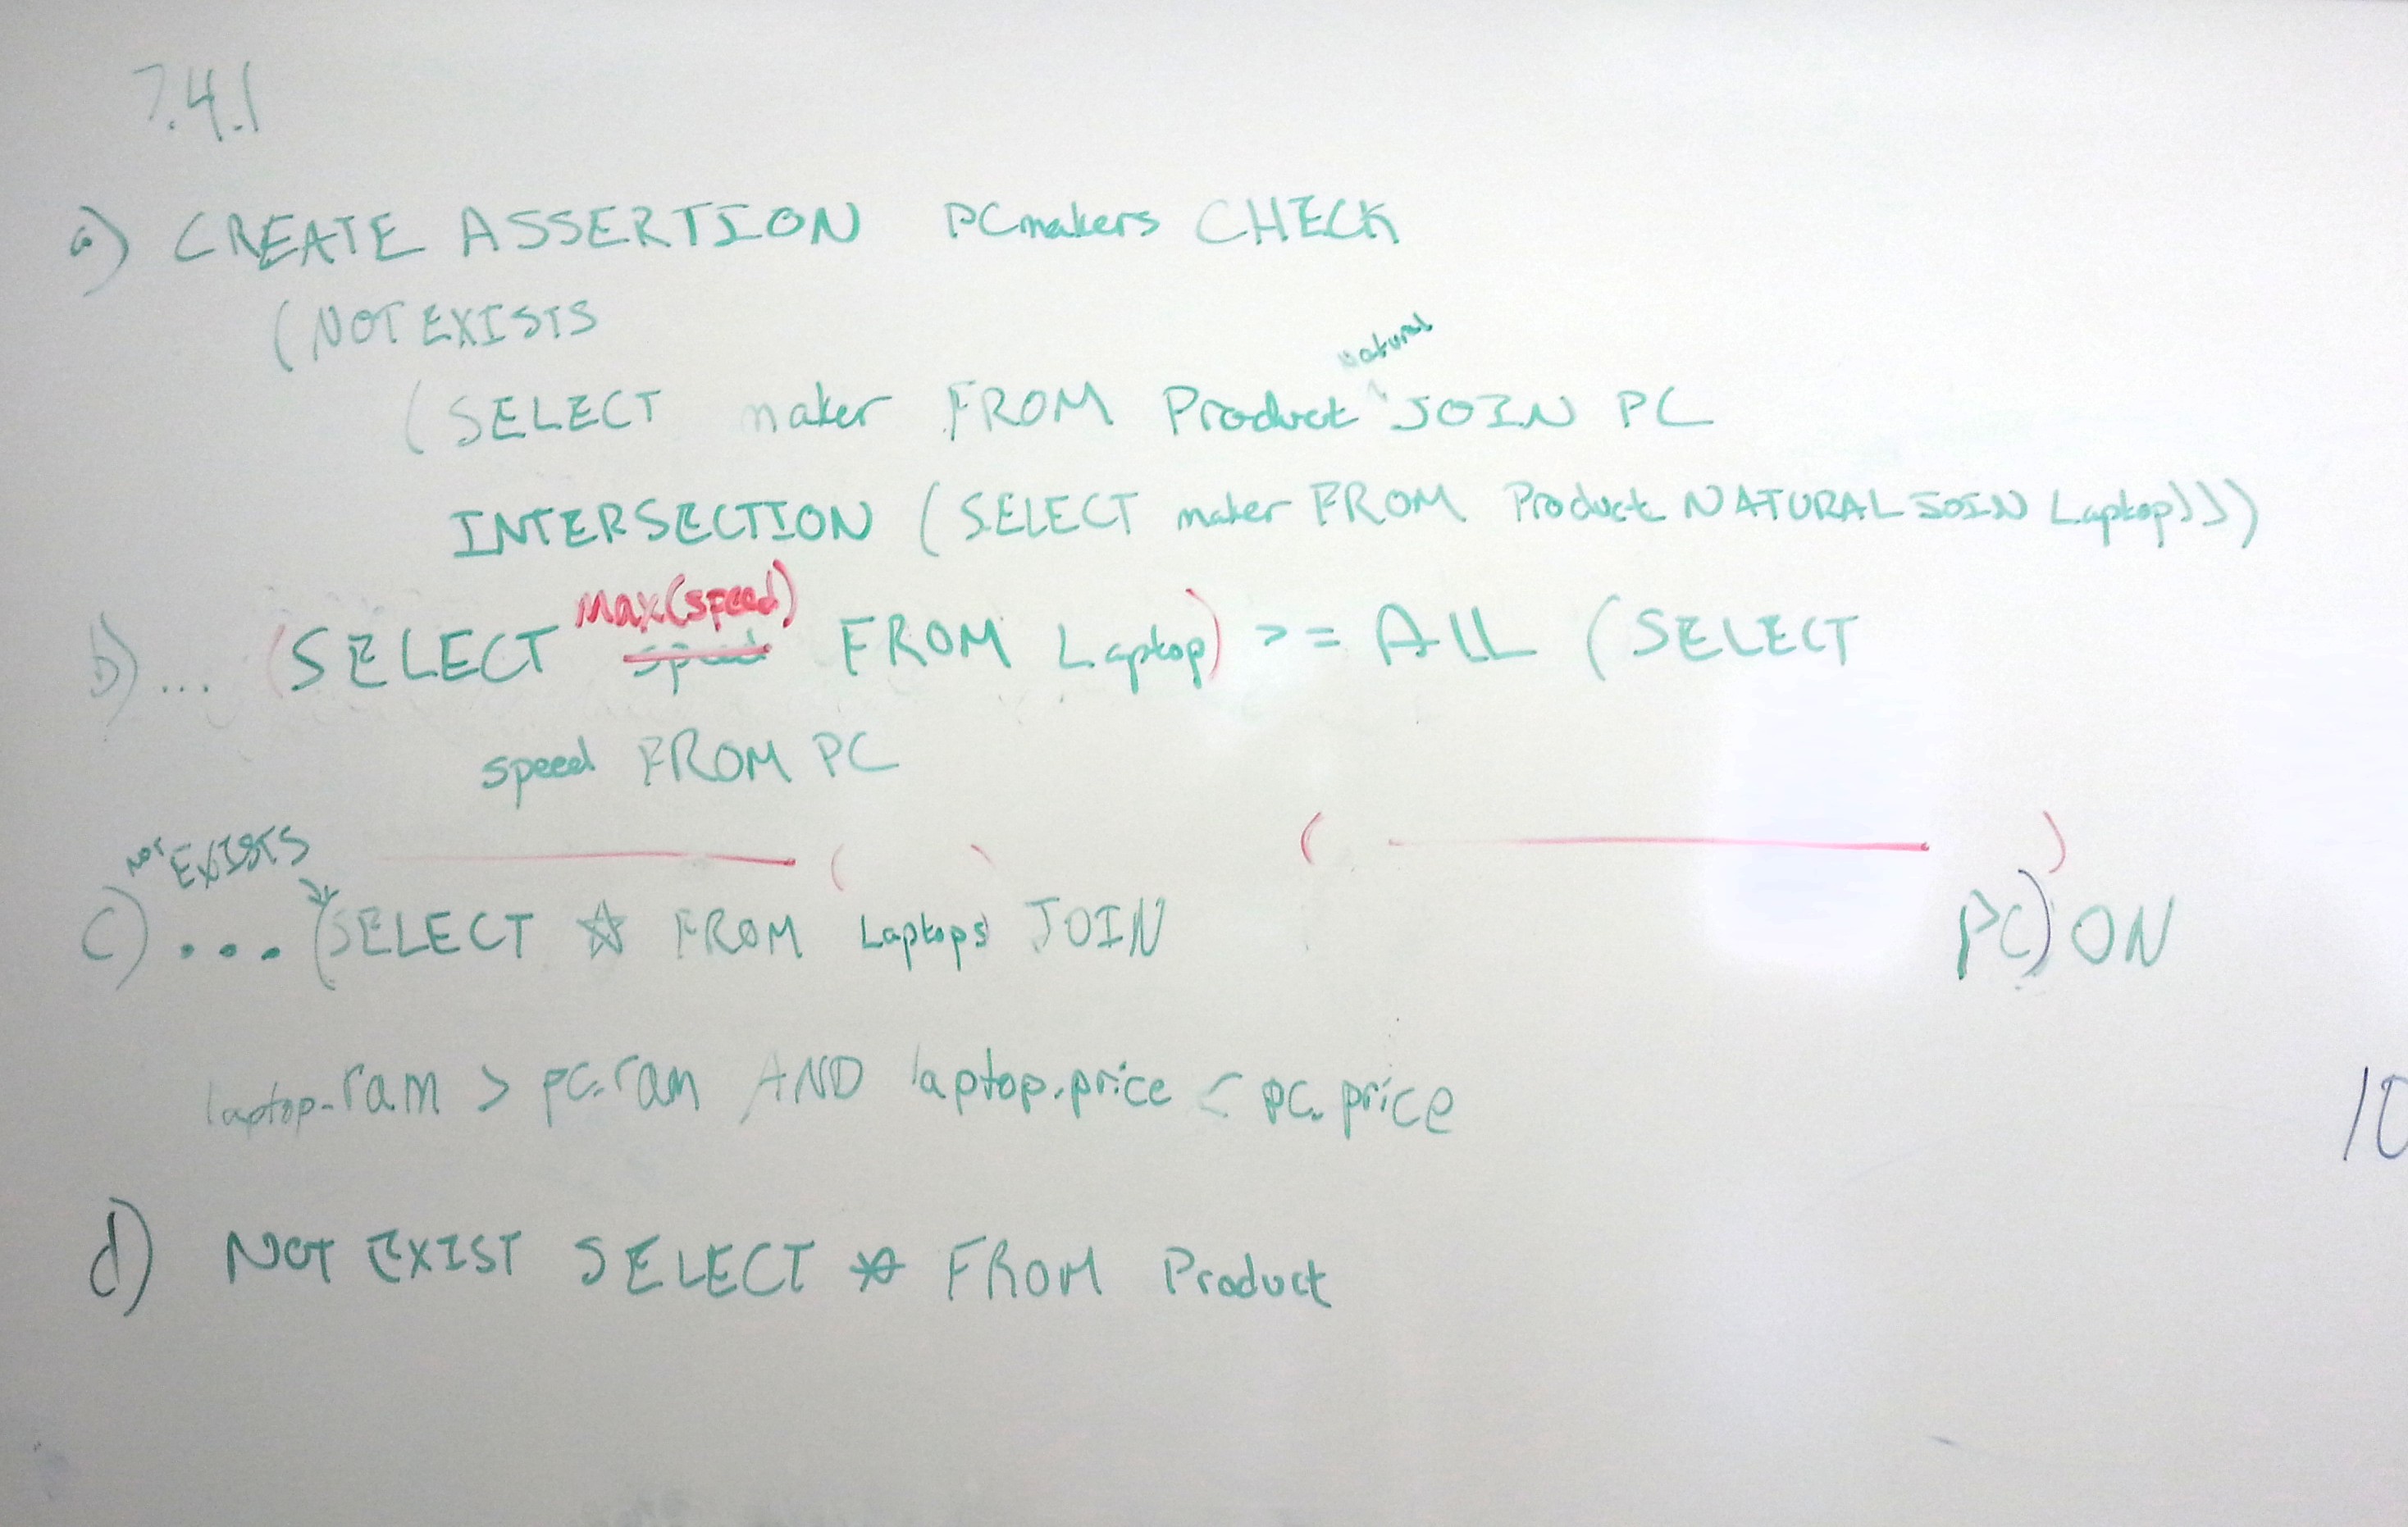 7.4.1
a) CREATE ASSERTION PCmakers CHECK
(NOT EXISTS
natural
(SELECT maker FROM Product ^ JOIN PC
INTERSECTION (SELECT maker FROM Product NATURAL JOIN Laptop)))
Max(speed)
b) ... (SELECT speed FROM Laptop) >= ALL (SELECT
speed FROM PC
NOT EXISTS
c) ... (SELECT * FROM Laptops JOIN PC) ON
laptop.ram > pc.ram AND laptop.price < pc.price
10
d) NOT EXIST SELECT * FROM Product